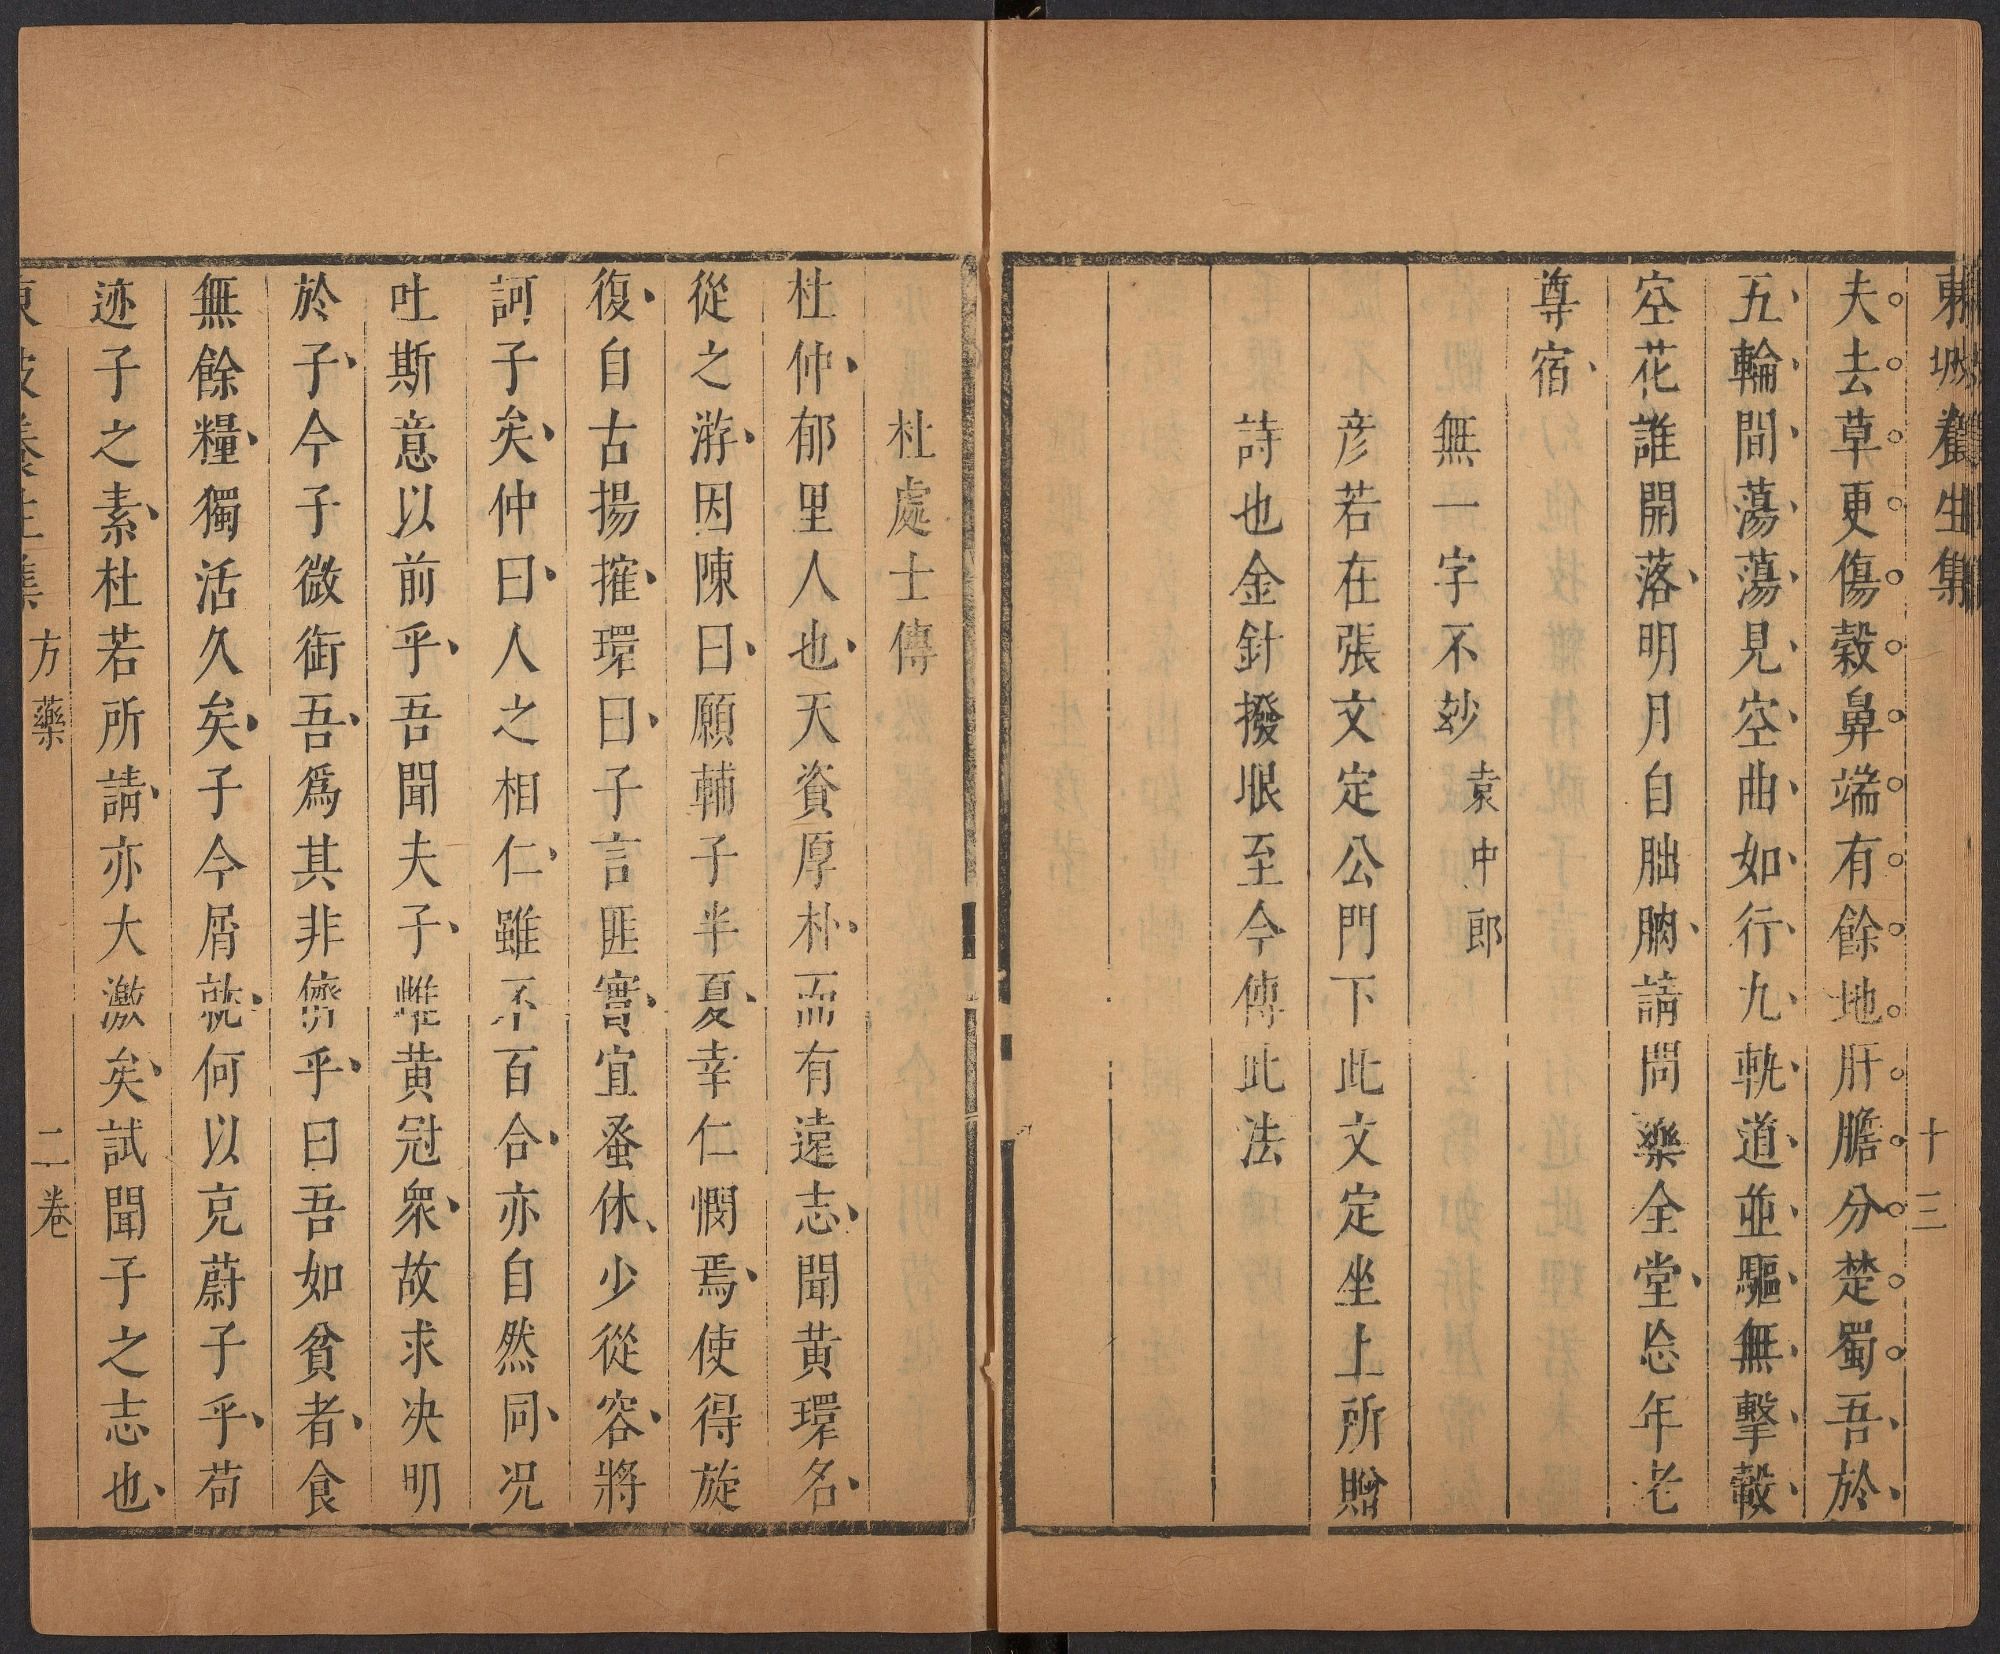 東坡養生集　十三
夫去草更傷穀鼻端有餘地肝膽分楚蜀吾於
五輪間蕩蕩見空曲如行九軌道並驅無擊轂
空花誰開落明月自朏朒請問樂全堂忘年老
尊宿
無一字不玅袁中郎
彦若在張文定公門下此文定坐上所贈
詩也金針撥眼至今傳此法
杜處士傳
杜仲郁里人也天資厚朴而有遠志聞黄環名
從之游因陳曰願輔子半夏幸仁憫焉使得旋
復自古揚搉環曰子言匪實宜蚤休少從容將
訶子矣仲曰人之相仁雖不百合亦自然同况
吐斯意以前乎吾聞夫子雌黄冠衆故求决明
於子今子微銜吾爲其非儕乎曰吾如貧者食
無餘糧獨活久矣子今屑就何以克蔚子乎苟
迹子之素杜若所請亦大激矣試聞子之志也
東坡養生集　方藥　二卷